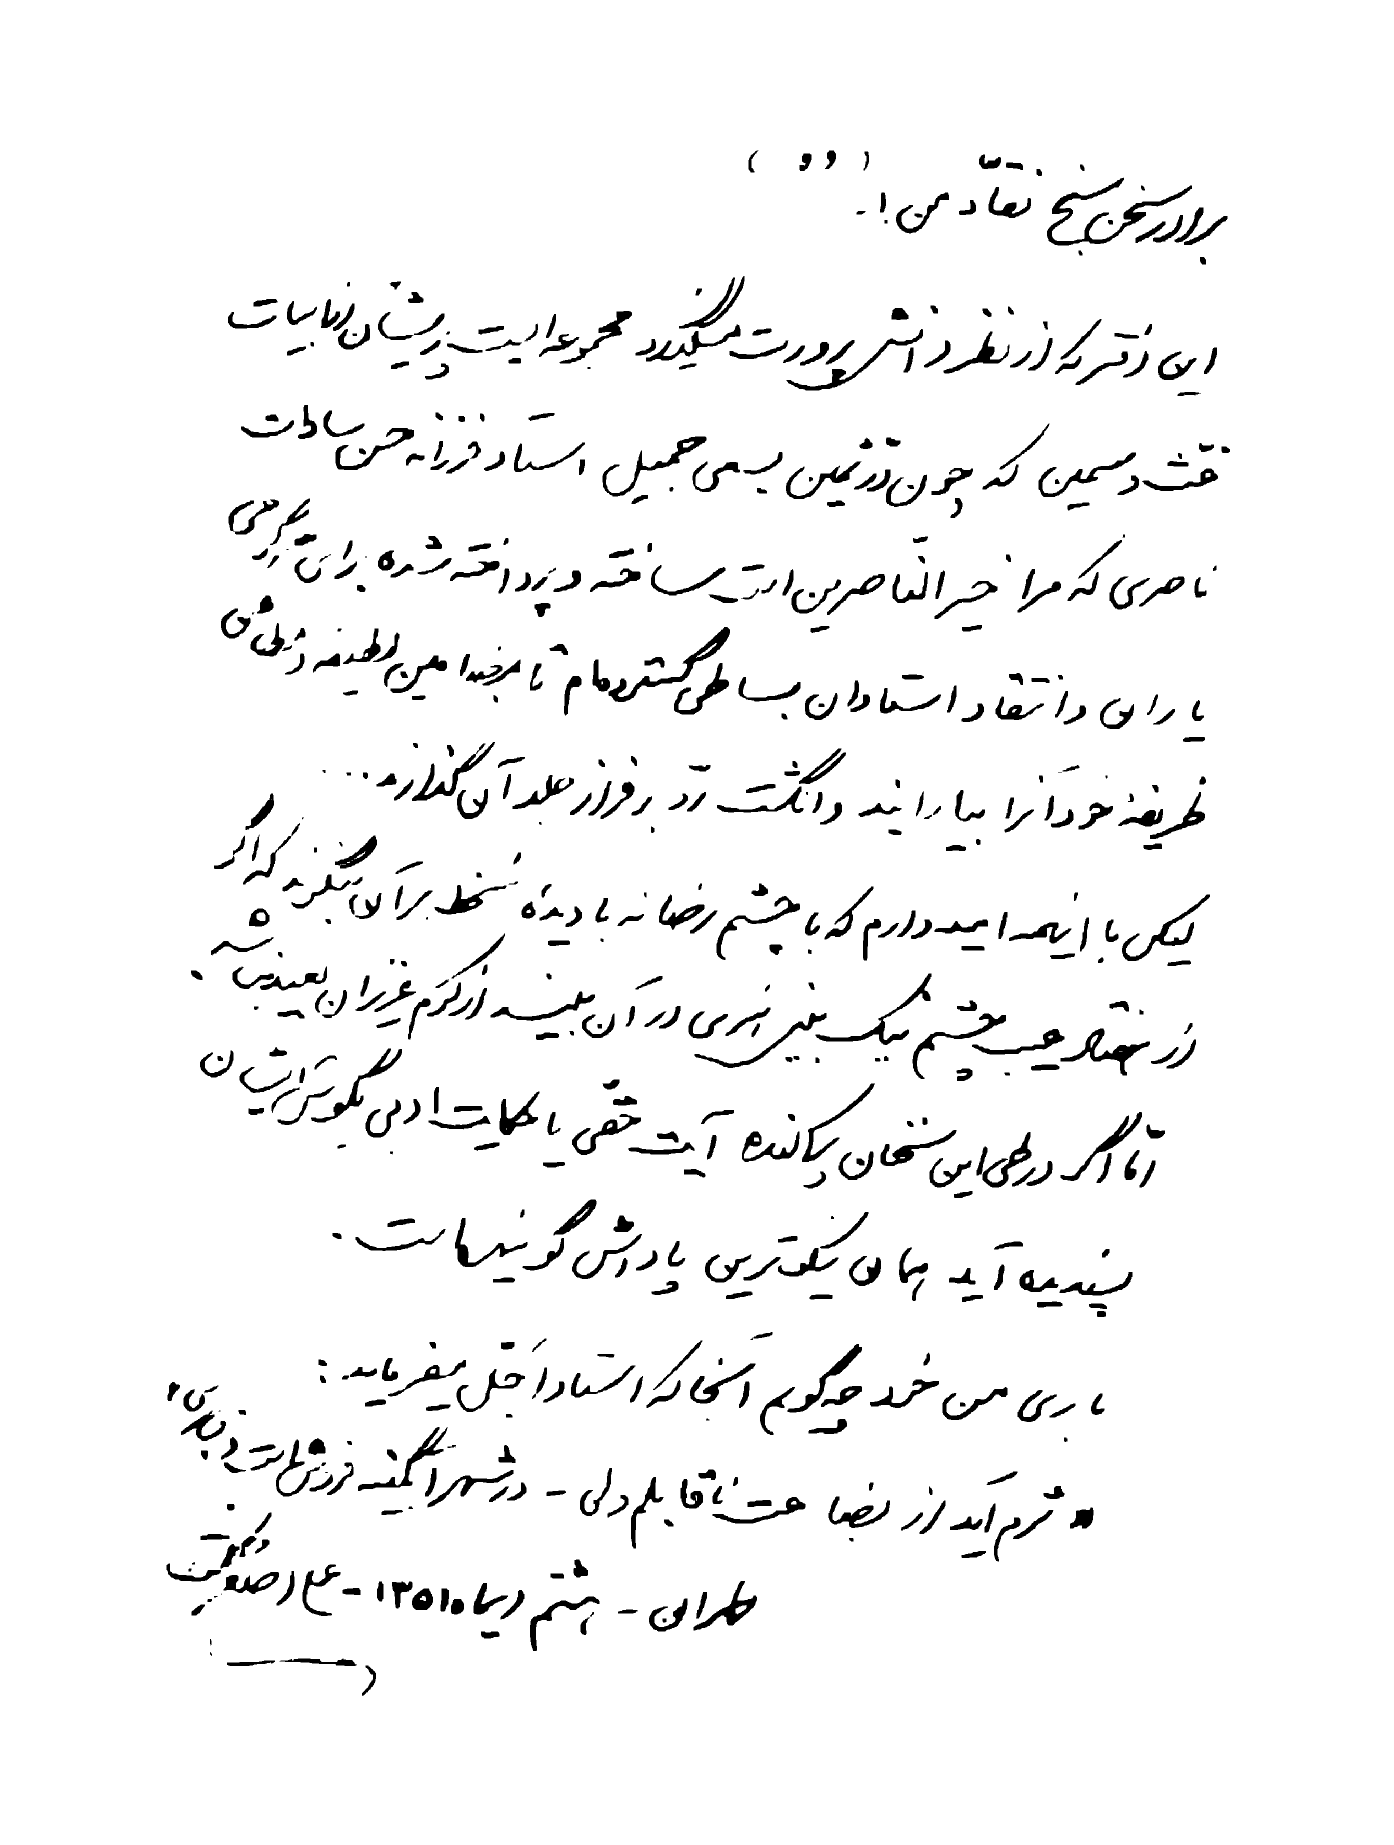 برادر سخن سنج نقّاد من ! . ( , , )
این دفتر که از نظر دانش پرورت میگذرد مجموعه ایست پریشان از ابیات
غث و سمین که چون درّ ثمین بسعی جمیل استاد فرزانه حسن سادات
ناصری که مرا خیر النّاصرین است ساخته و پرداخته شده برای سرگرمی
یاران و انتقاد استادان بساطی گسترده‌ام تا هر خداوند لطیفه
ظریفهٔ خود آنرا بیارایند و انگشت ردّ بر فراز جلد آن گذارند ...
لیکن با اینهمه امید دارم که با چشم رضا نه با دیدهٔ سُخط بر آن بنگرند که اگر
از هفتاد عیب بچشم نیک بینی هنری در آن ببینند از کرم عزیزان بعید نباشد .
امّا اگر در طی این سخنان پراکنده آیت حقّی یا حکایت ادبی بگوش ایشان
پسندیده آید همان نیکوترین پاداش گوینده‌است .
باری من خود چه گویم آنجا که استاد اَجَل میفرماید :
« شرم آید از بضاعت ناقابلم ولی - در شهر آبگینه فروش است و جوهری »
طهران - هشتم دیماه ۱۳۵۱ - علی